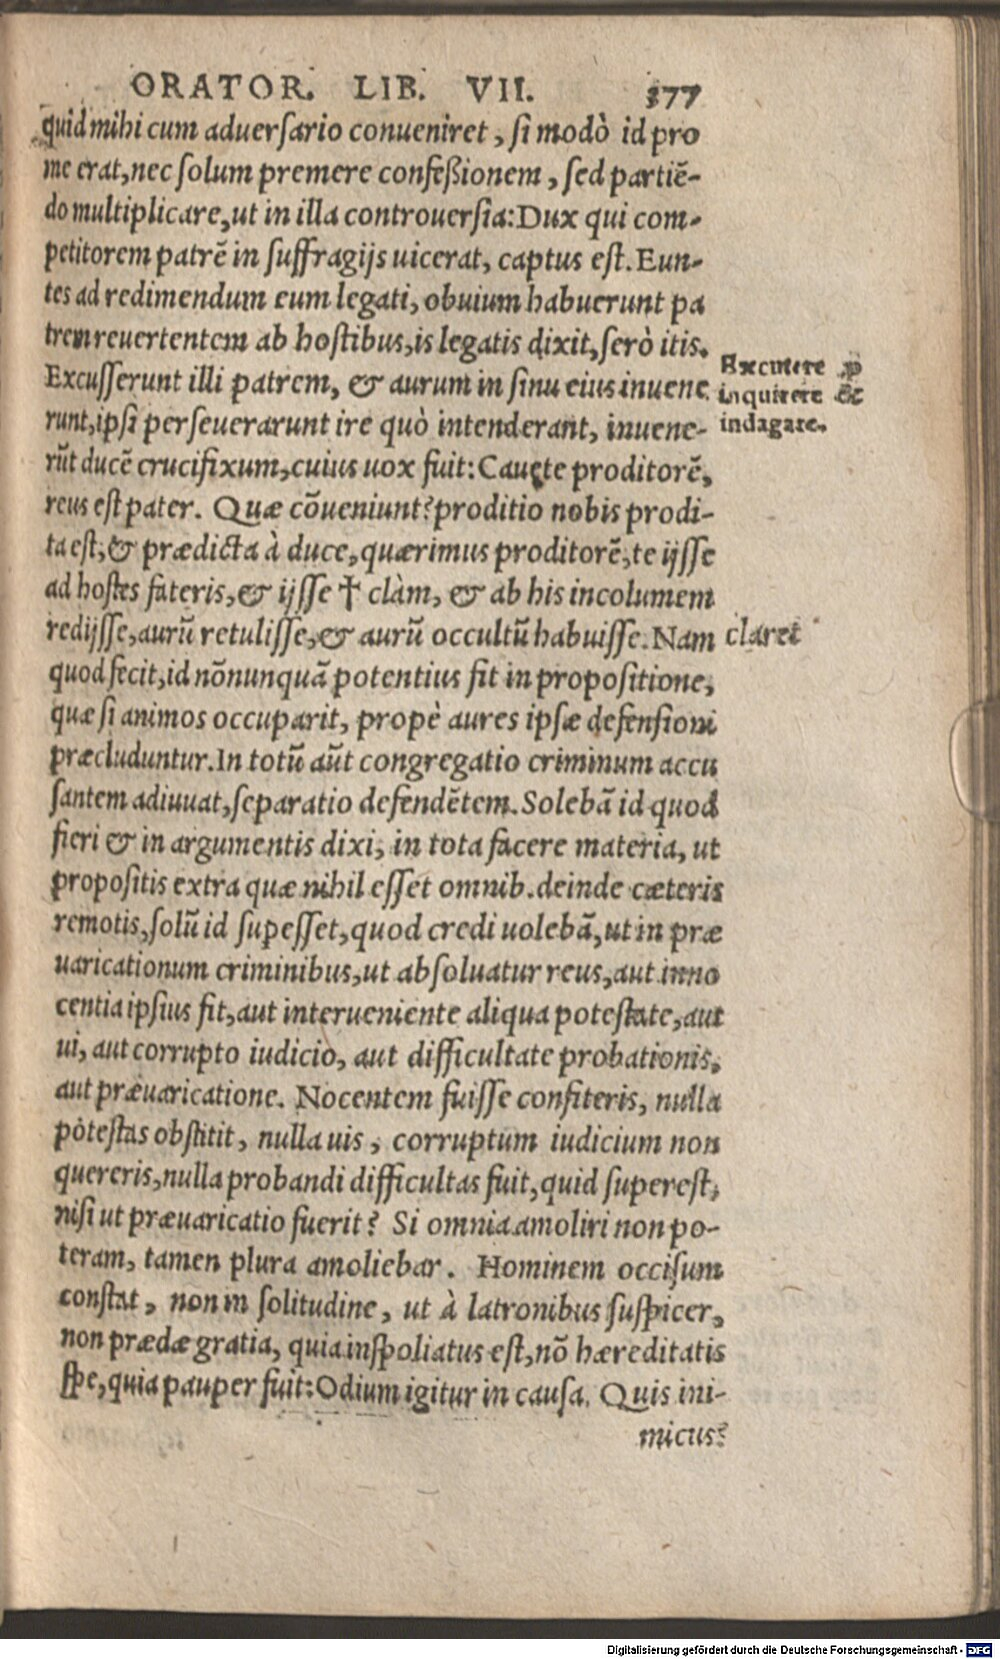 ORATOR. LIB. VII. 377
quid mihi cum aduersario conueniret, si modò id pro
me erat, nec solum premere confeßionem, sed partiē-
do multiplicare, ut in illa controuersia: Dux qui com-
petitorem patrē in suffragijs uicerat, captus est. Eun-
tes ad redimendum eum legati, obuium habuerunt pa
trem reuertentem ab hostibus, is legatis dixit, serò itis.
Excusserunt illi patrem, & aurum in sinu eius inuene
runt, ipsi perseuerarunt ire quò intenderant, inuene-
rūt ducē crucifixum, cuius uox fuit: Cauete proditorē,
reus est pater. Quæ cōueniunt? proditio nobis prodi-
ta est, & prædicta à duce, quærimus proditorē, te ijsse
ad hostes fateris, & ijsse † clàm, & ab his incolumem
redijsse, aurū retulisse, & aurū occultū habuisse. Nam
quod fecit, id nōnunquā potentius fit in propositione,
quæ si animos occuparit, propè aures ipsæ defensioni
præcluduntur. In totū aūt congregatio criminum accu
santem adiuuat, separatio defendētem. Solebā id quod
fieri & in argumentis dixi, in tota facere materia, ut
propositis extra quæ nihil esset omnib. deinde cæteris
remotis, solū id supesset, quod credi uolebā, ut in præ
uaricationum criminibus, ut absoluatur reus, aut inno
centia ipsius fit, aut interueniente aliqua potestate, aut
ui, aut corrupto iudicio, aut difficultate probationis,
aut præuaricatione. Nocentem fuisse confiteris, nulla
potestas obstitit, nulla uis, corruptum iudicium non
quereris, nulla probandi difficultas fuit, quid superest,
nisi ut præuaricatio fuerit? Si omnia amoliri non po-
teram, tamen plura amoliebar. Hominem occisum
constat, non in solitudine, ut à latronibus suspicer,
non prædæ gratia, quia inspoliatus est, nō hæreditatis
spe, quia pauper fuit: Odium igitur in causa. Quis ini-
micus?
Excutere ꝓ
inquirere &
indagare.
claret
Digitalisierung gefördert durch die Deutsche Forschungsgemeinschaft - DFG